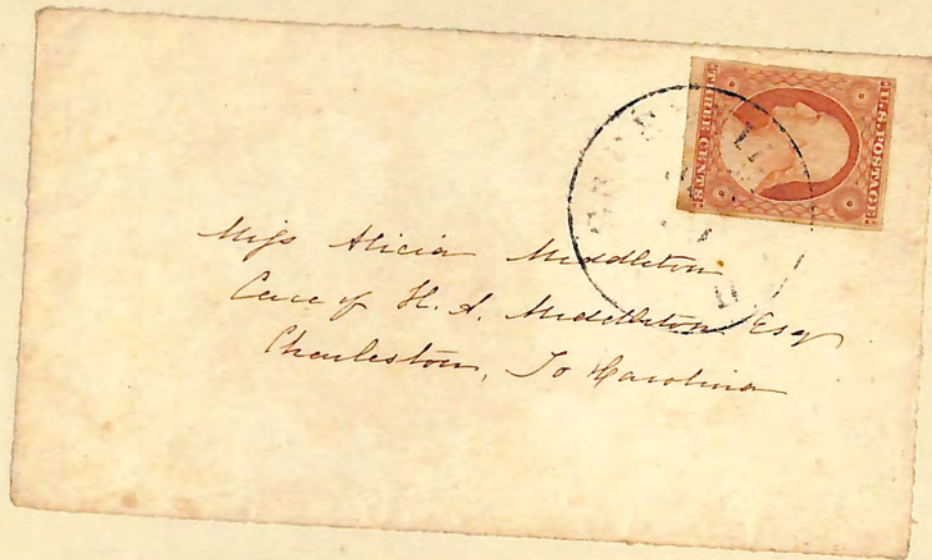 U.S. POSTAGE
THREE CENTS
Miss Alicia Middleton
Care of H. A. Middleton Esq
Charleston, So Carolina